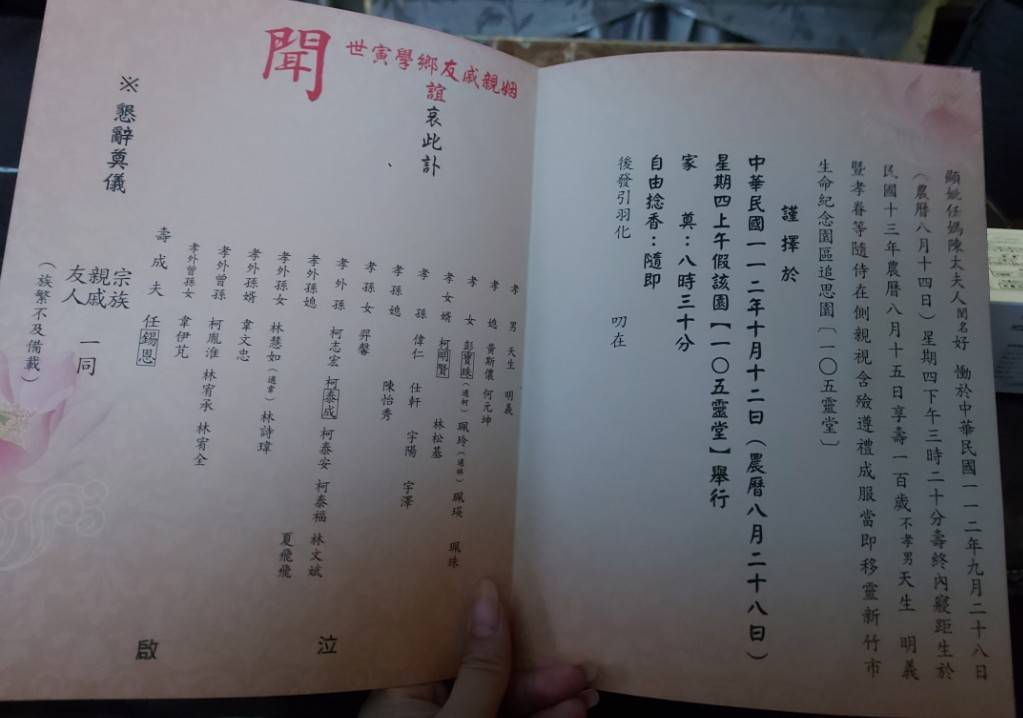 顯妣任媽陳太夫人閨名好　慟於中華民國一一二年九月二十八日
（農曆八月十四日）星期四下午三時二十分壽終內寢距生於
民國十三年農曆八月十五日享壽一百歲不孝男天生　明義
暨孝眷等隨侍在側親視含殮遵禮成服當即移靈新竹市
生命紀念園區追思園〔一〇五靈堂〕
謹擇於
中華民國一一二年十月十二日（農曆八月二十八日）
星期四上午假該園【一〇五靈堂】舉行
家　　奠：八時三十分
自由捻香：隨即
後發引羽化　　　叨在
姻親戚友鄉學寅世
誼哀此訃
聞
孝　男　天生　明義
孝　媳　黃斯儂　何元坤
孝　女　彭寶珠（適柯）　珮玲（適林）　珮瑛　珮珠
孝女婿　柯明賢　林松基
孝　孫　偉仁　仕軒　宇陽　宇澤
孝孫媳　陳怡秀
孝孫女　羿馨
孝外孫　柯志宏　柯泰成　柯泰安　柯泰福　林文斌
孝外孫媳　夏飛飛
孝外孫女　林慧如（適韋）　林詩瑋
孝外孫婿　韋文忠
孝外曾孫　柯胤淮　林宥承　林宥全
孝外曾孫女　韋伊芃
壽成夫　任錫恩
泣
啟
宗族
親戚　一同
友人
（族繁不及備載）
※懇辭奠儀